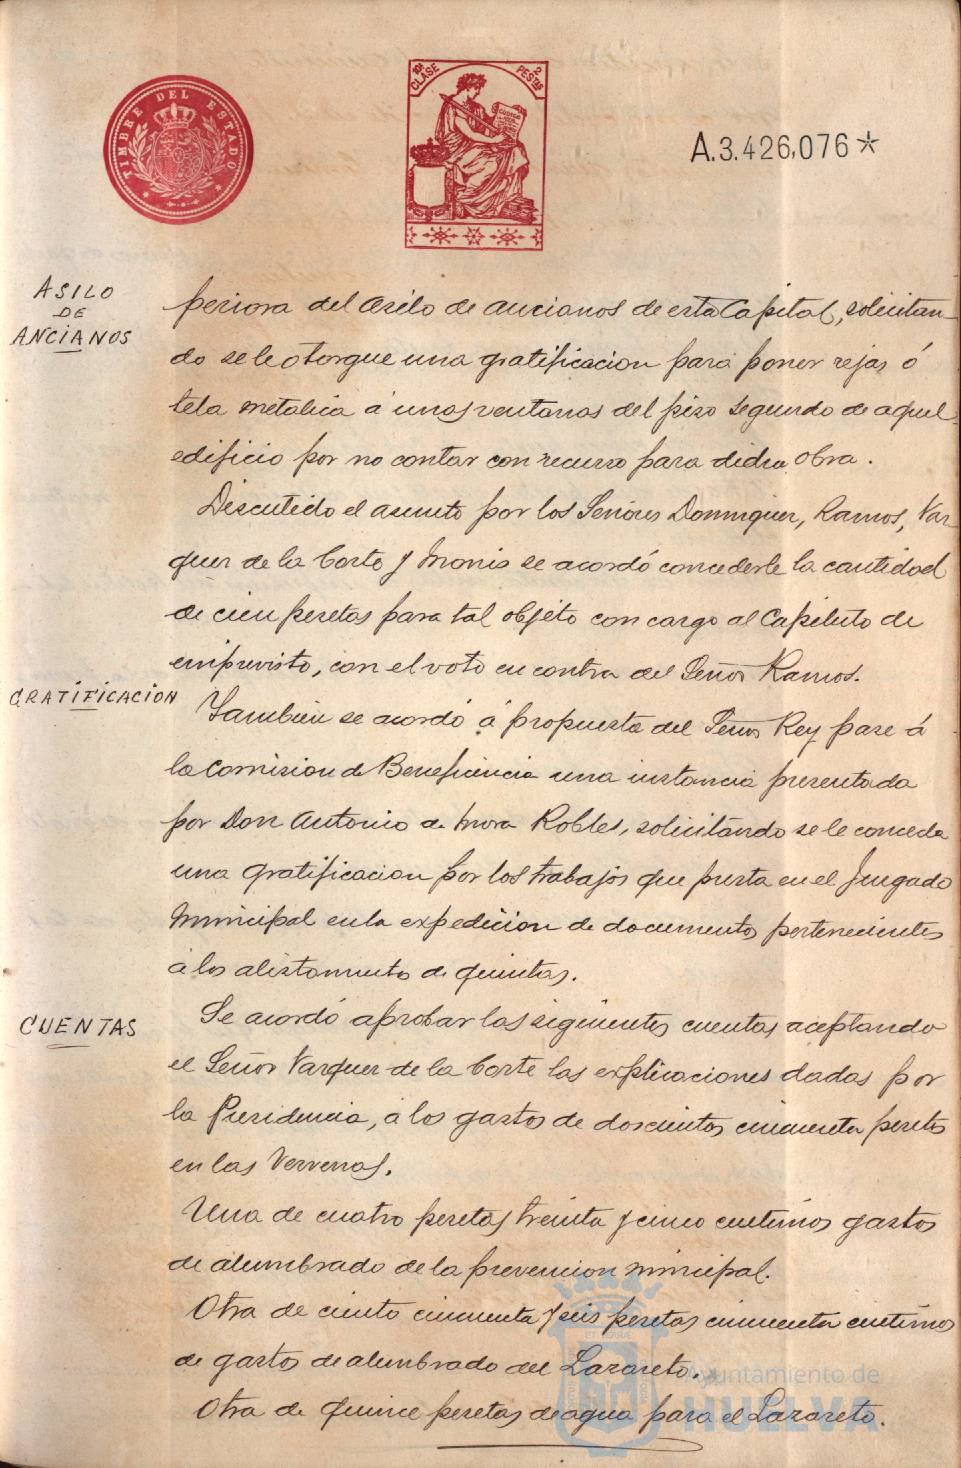 TIMBRE DEL ESTADO
10ª CLASE
2 PESTAS
A.3.426,076*
ASILO
DE
ANCIANOS
periora del Asilo de Ancianos de esta Capital, solicitan-
do se le otorgue una gratificacion para poner rejas ó
tela metalica á unas ventanas del piso segundo de aquel
edificio por no contar con recurso para dicha obra.
Discutido el asunto por los Señores Dominguez, Ramos, Vaz-
quez de la Corte y Monis se acordó concederle la cantidad
de cien pesetas para tal objéto con cargo al Capitulo de
imprevisto, con el voto en contra del Señor Ramos.
GRATIFICACION
Tambien se acordó á propuesta del Señor Rey pase á
la Comision de Beneficencia una instancia presentada
por Don Antonio de Mora Robles, solicitando se le conceda
una gratificacion por los trabajos que presta en el Juzgado
Municipal en la expedicion de documentos pertenecientes
á los alistamiento de quintas.
CUENTAS
Se acordó aprobar las siguientes cuentas aceptando
el Señor Vazquez de la Corte las explicaciones dadas por
la Presidencia, á los gastos de doscientos cincuenta pesetas
en las Vervenas.
Una de cuatro pesetas treinta y cinco centimos gastos
de alumbrado de la prevencion municipal.
Otra de ciento cincuenta y seis pesetas cincuenta centimos
de gastos de alumbrado del Lazareto.
Otra de quince pesetas de agua para el Lazareto.
Ayuntamiento de
HUELVA